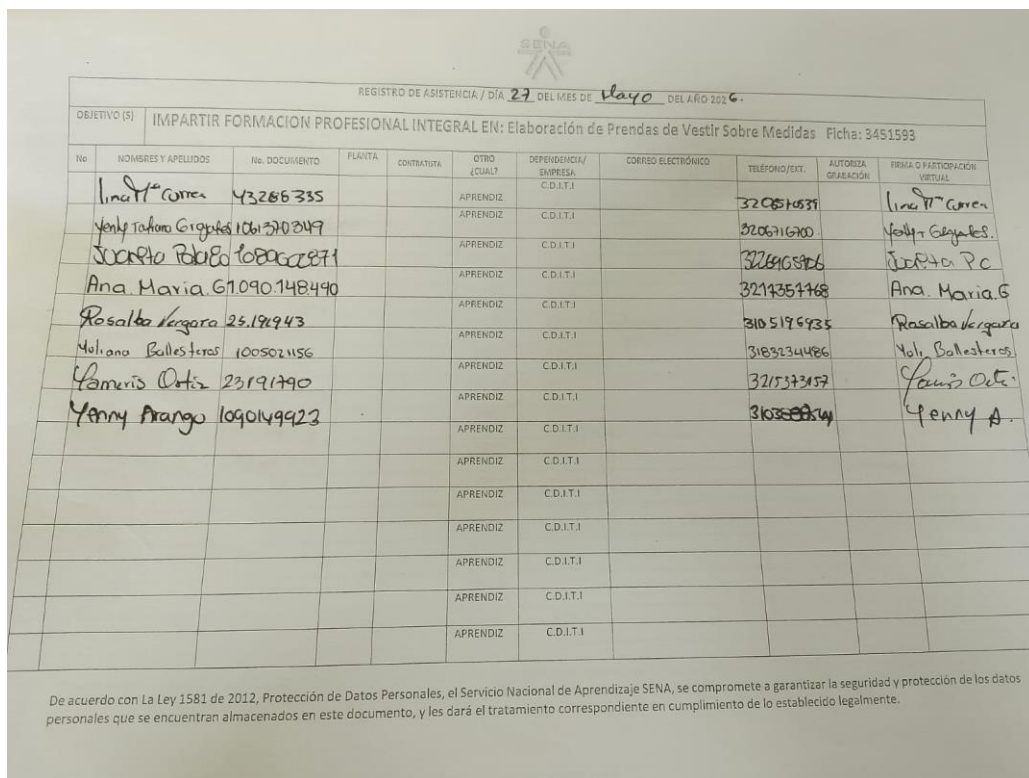 SENA
REGISTRO DE ASISTENCIA / DÍA 27 DEL MES DE Mayo DEL AÑO 2026.
OBJETIVO (S) IMPARTIR FORMACION PROFESIONAL INTEGRAL EN: Elaboración de Prendas de Vestir Sobre Medidas Ficha: 3451593
No NOMBRES Y APELLIDOS No. DOCUMENTO PLANTA CONTRATISTA OTRO ¿CUAL? DEPENDENCIA/ EMPRESA CORREO ELECTRÓNICO TELÉFONO/EXT. AUTORIZA GRABACIÓN FIRMA O PARTICIPACIÓN VIRTUAL
Lina Mª Correa 43286335 APRENDIZ C.D.I.T.I Lina Mª Correa
1061370349 APRENDIZ C.D.I.T.I 3206716700
APRENDIZ C.D.I.T.I
Ana. Maria. G 1.090.148.490 APRENDIZ C.D.I.T.I 3217357768 Ana. Maria. G
Rosalba Vergara APRENDIZ C.D.I.T.I 3105196935 Rosalba Vergara
Yoliana Ballesteros APRENDIZ C.D.I.T.I 3183234486 Yoli Ballesteros
Yameris Ortiz 23191790 APRENDIZ C.D.I.T.I
Yenny Arango 1090149923 APRENDIZ C.D.I.T.I Yenny A.
APRENDIZ C.D.I.T.I
APRENDIZ C.D.I.T.I
APRENDIZ C.D.I.T.I
APRENDIZ C.D.I.T.I
APRENDIZ C.D.I.T.I
APRENDIZ C.D.I.T.I
APRENDIZ C.D.I.T.I
De acuerdo con La Ley 1581 de 2012, Protección de Datos Personales, el Servicio Nacional de Aprendizaje SENA, se compromete a garantizar la seguridad y protección de los datos
personales que se encuentran almacenados en este documento, y les dará el tratamiento correspondiente en cumplimiento de lo establecido legalmente.